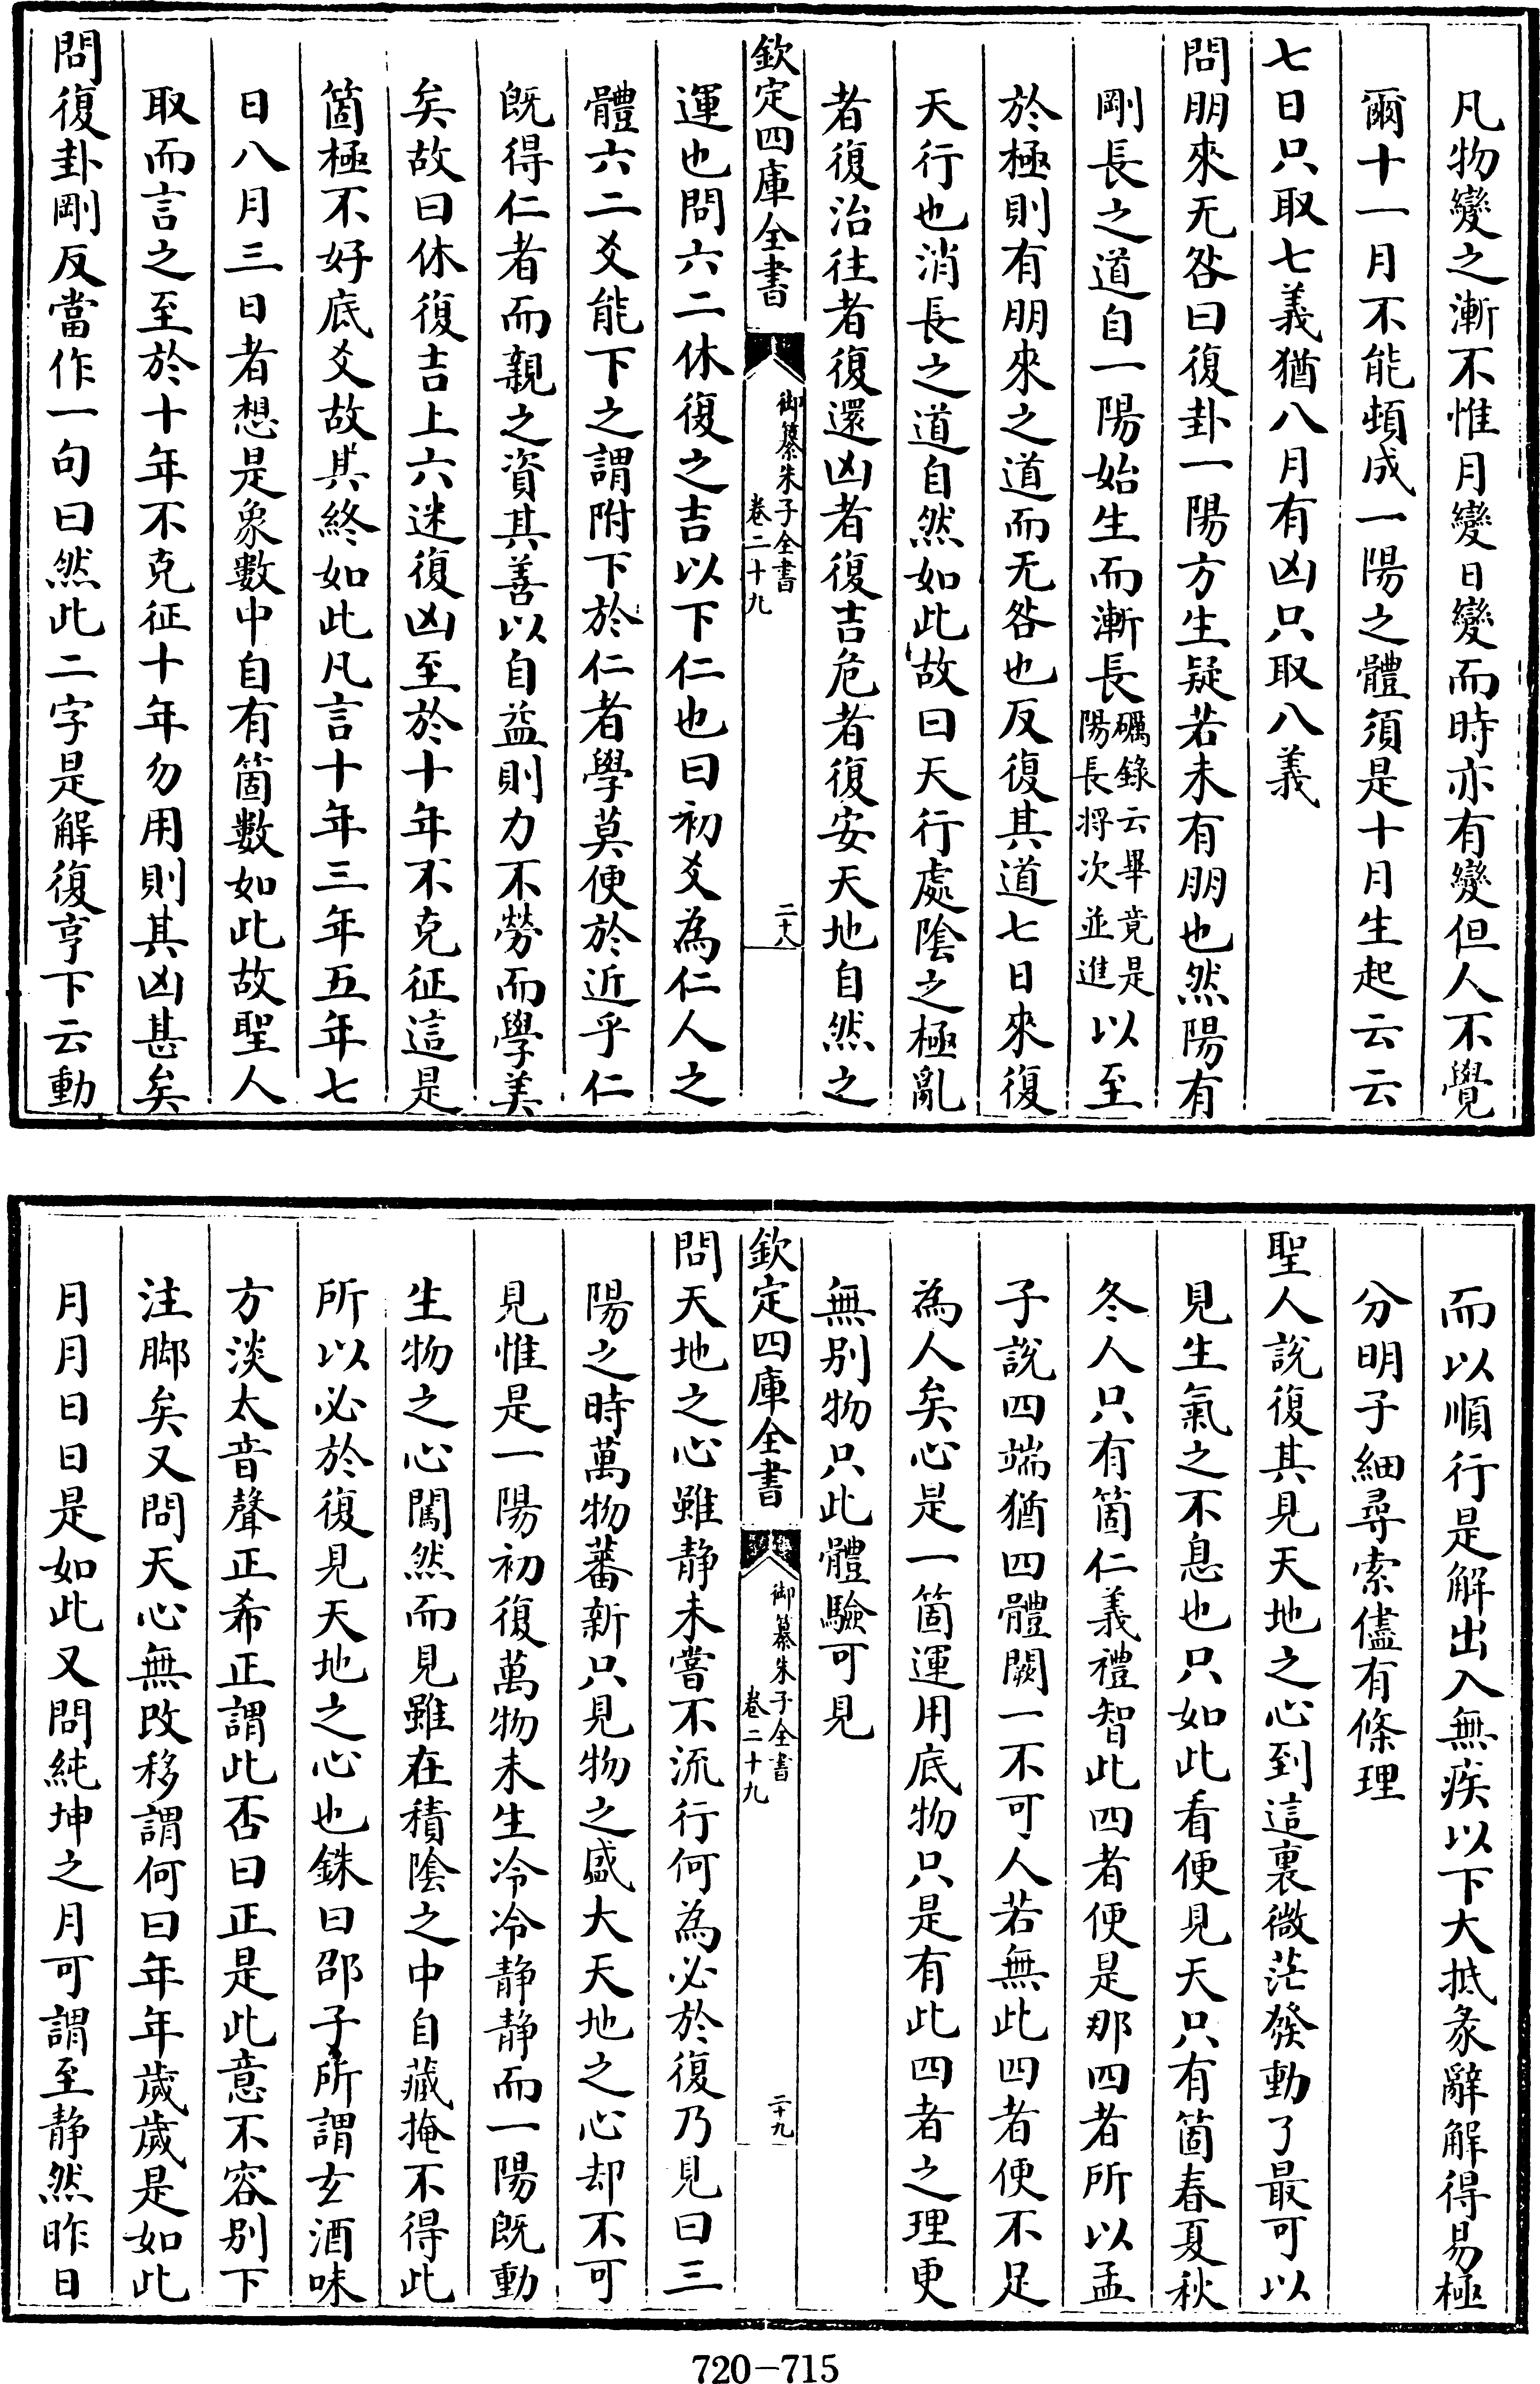 凡物變之漸不惟月變日變而時亦有變但人不覺
爾十一月不能頓成一陽之體須是十月生起云云
七日只取七義猶八月有凶只取八義
問朋來无咎曰復卦一陽方生疑若未有朋也然陽有
剛長之道自一陽始生而漸長礪錄云畢竟是陽長将次並進以至
於極則有朋來之道而无咎也反復其道七日來復
天行也消長之道自然如此故曰天行處陰之極亂
者復治往者復還凶者復吉危者復安天地自然之
欽定四庫全書
御纂朱子全書
卷二十九
二十八
運也問六二休復之吉以下仁也曰初爻為仁人之
體六二爻能下之謂附下於仁者學莫便於近乎仁
既得仁者而親之資其善以自益則力不勞而學美
矣故曰休復吉上六迷復凶至於十年不克征這是
箇極不好底爻故其終如此凡言十年三年五年七
日八月三日者想是象數中自有箇數如此故聖人
取而言之至於十年不克征十年勿用則其凶甚矣
問復卦剛反當作一句曰然此二字是解復亨下云動
而以順行是解出入無疾以下大抵彖辭解得易極
分明子細尋索儘有條理
聖人說復其見天地之心到這裏微茫發動了最可以
見生氣之不息也只如此看便見天只有箇春夏秋
冬人只有箇仁義禮智此四者便是那四者所以孟
子說四端猶四體闕一不可人若無此四者便不足
為人矣心是一箇運用底物只是有此四者之理更
無別物只此體驗可見
欽定四庫全書
御纂朱子全書
卷二十九
二十九
問天地之心雖静未嘗不流行何為必於復乃見曰三
陽之時萬物蕃新只見物之盛大天地之心却不可
見惟是一陽初復萬物未生冷冷静静而一陽既動
生物之心闖然而見雖在積陰之中自藏掩不得此
所以必於復見天地之心也銖曰邵子所謂玄酒味
方淡太音聲正希正謂此否曰正是此意不容别下
注脚矣又問天心無改移謂何曰年年歲歲是如此
月月日日是如此又問純坤之月可謂至静然昨日
720-715